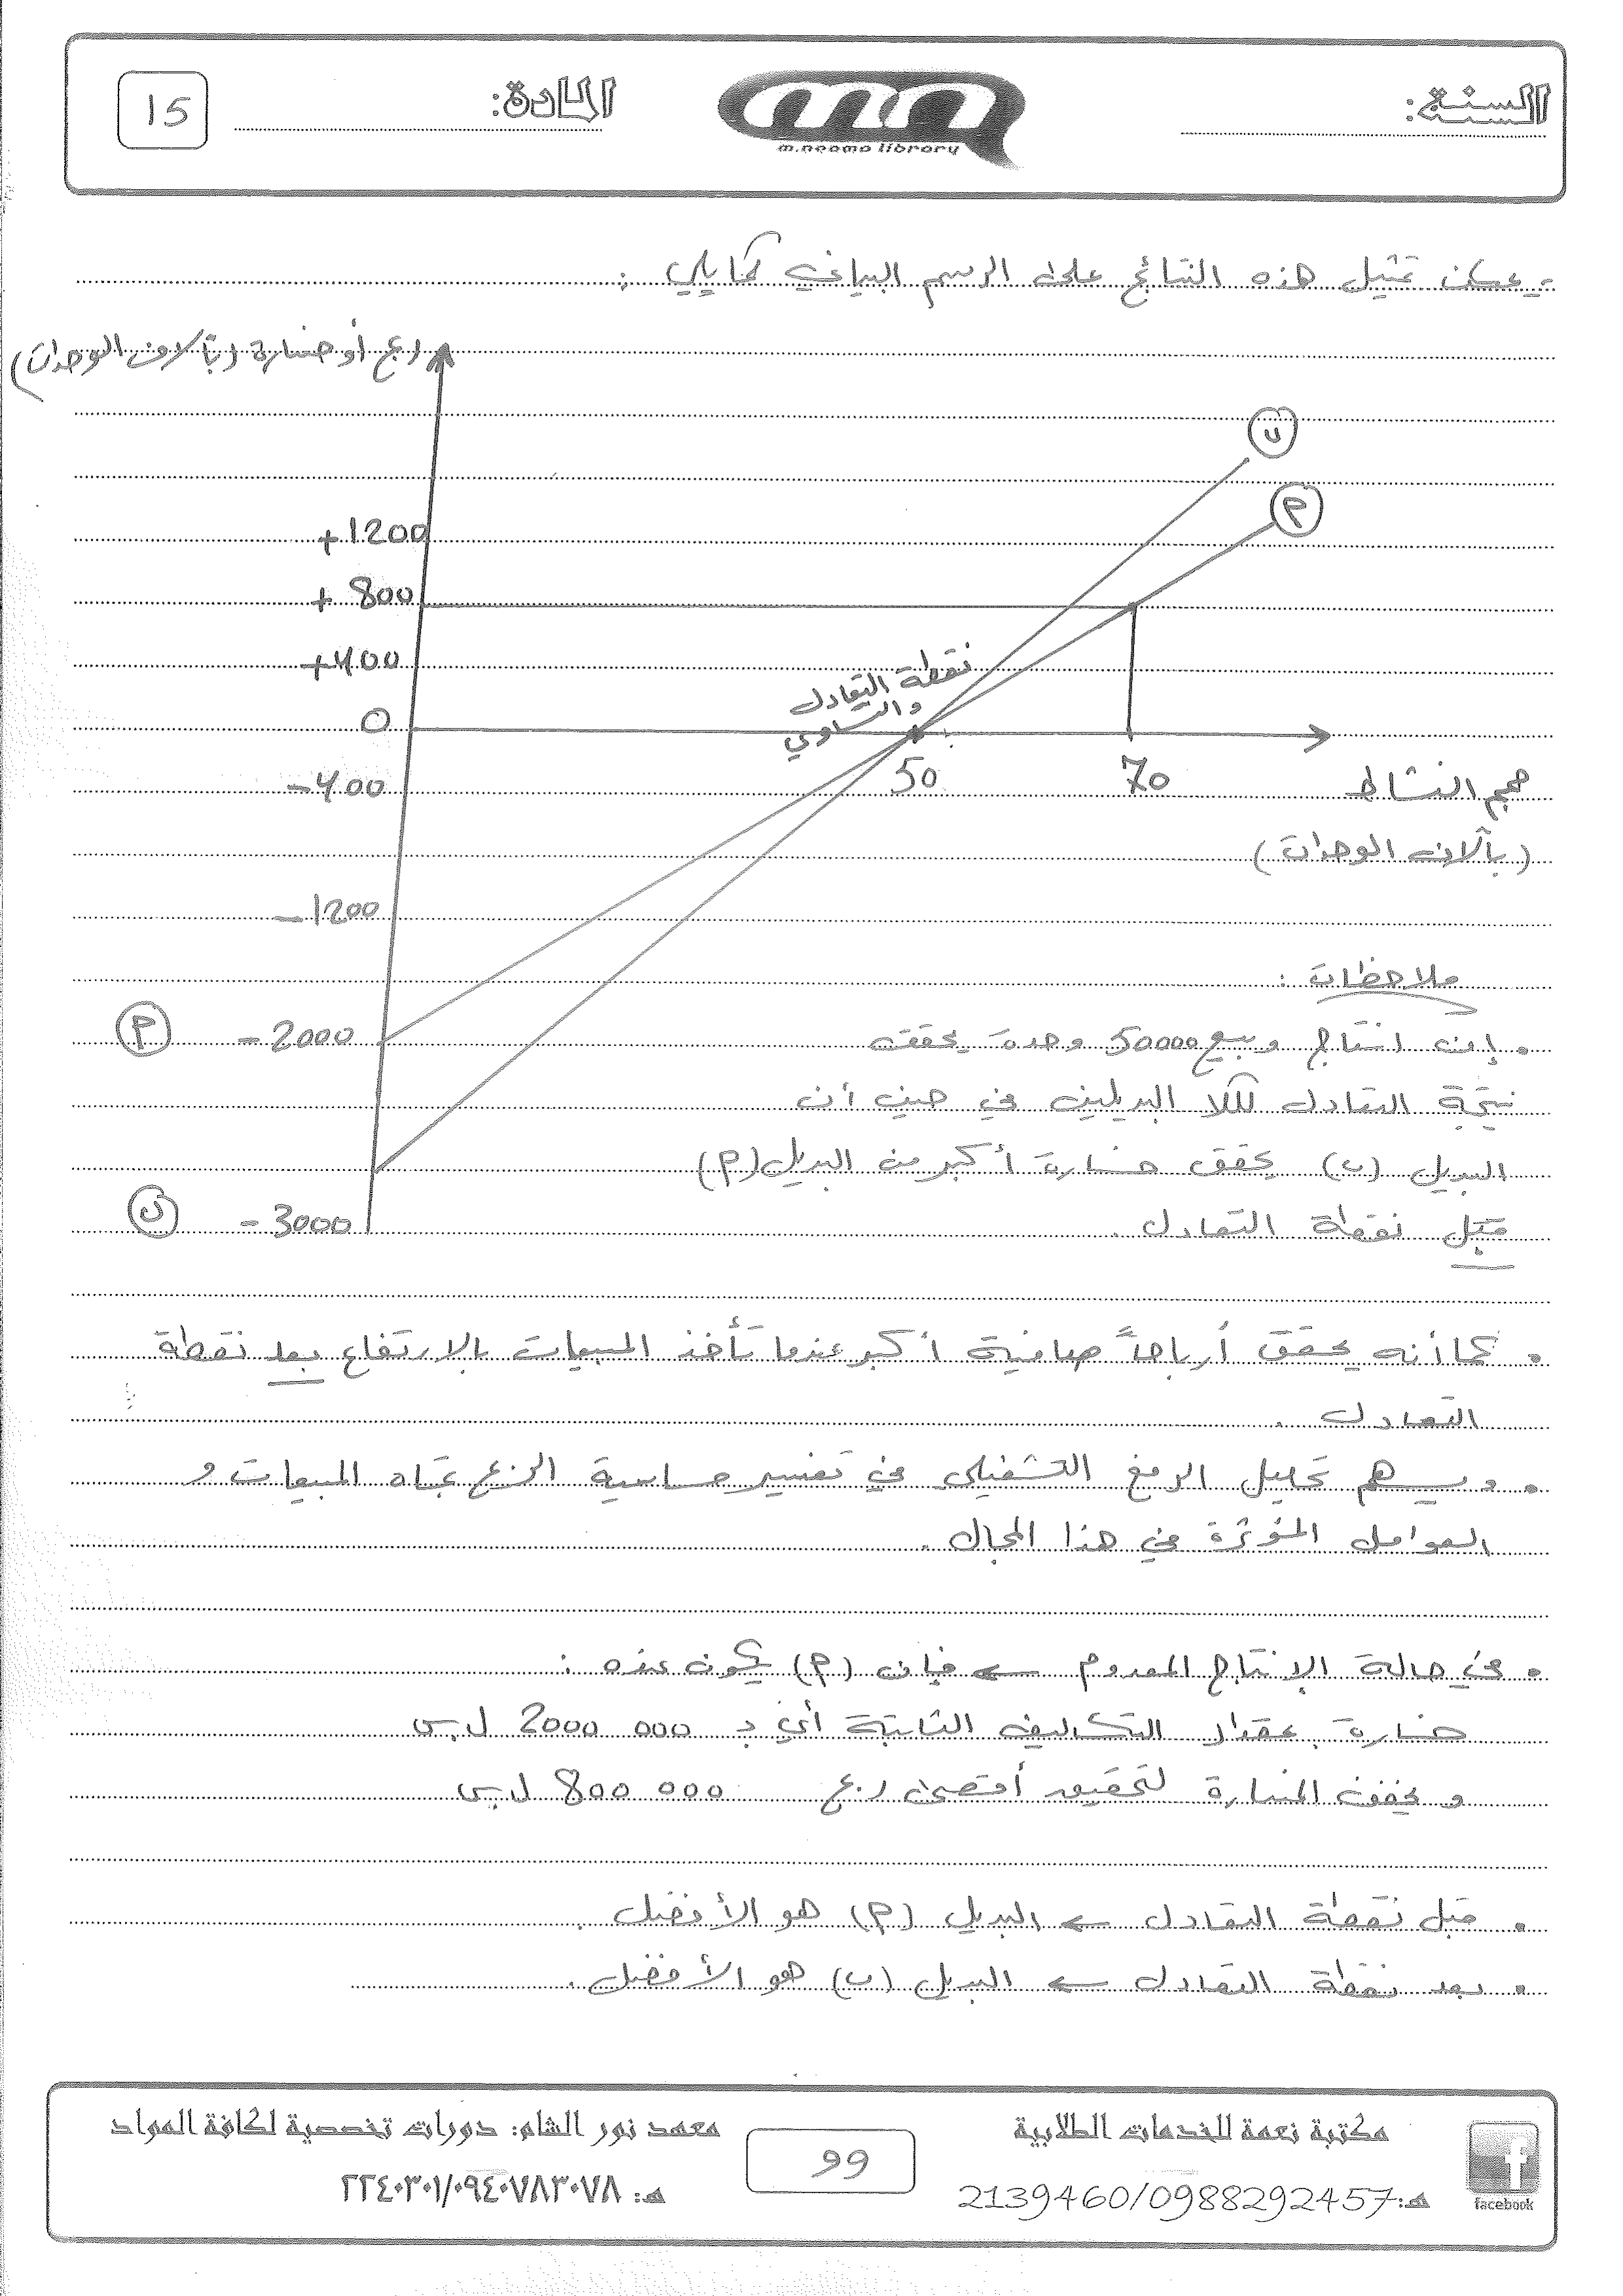 السنة:
المادة:
15
m.neoma library
- يمكن تمثيل هذه النتائج على الرسم البياني كمايلي :
ربح أو خسارة (بآلاف الوحدات)
ب
م
+1200
+ 800
+400
0
نقطة التعادل
والتساوي
50
70
حجم النشاط
(بآلاف الوحدات)
-400
-1200
ملاحظات :
م
- 2000
. إن انتاج وبيع 50000 وحدة يحقق
نتيجة التعادل لكلا البديلين في حين أن
البديل (ب) يحقق خسارة أكبر من البديل (م)
ب
- 3000
قبل نقطة التعادل .
. كما أنه يحقق أرباحاً صافية أكبر عندما تأخذ المبيعات بالارتفاع بعد نقطة
التعادل .
. ويسهم تحليل الرفع التشغيلي في تفسير حساسية الربح تجاه المبيعات و
العوامل المؤثرة في هذا المجال .
. في حالة الإنتاج المعدوم ← فإن (م) يكون عنده :
خسارة بمقدار التكاليف الثابتة أي بـ 2000 000 ل.س
و يخفف الخسارة لتحقيق أقصى ربح 800 000 ل.س
. قبل نقطة التعادل ← البديل (م) هو الأفضل .
. بعد نقطة التعادل ← البديل (ب) هو الأفضل .
مكتبة نعمة للخدمات الطلابية
هـ: 2139460/0988292457
facebook
99
معهد نور الشام: دورات تخصصية لكافة المواد
هـ: ٢٢٤٠٣٠١/٠٩٤٠٧٨٣٠٧٨